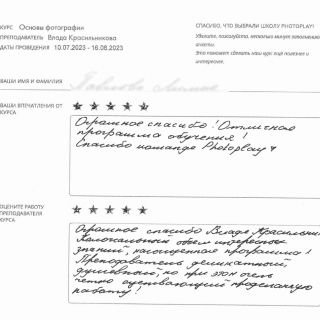 КУРС Основы фотографии
ПРЕПОДАВАТЕЛЬ Влада Красильникова
ДАТЫ ПРОВЕДЕНИЯ 10.07.2023 - 16.08.2023
СПАСИБО, ЧТО ВЫБРАЛИ ШКОЛУ PHOTOPLAY!
Уделите, пожалуйста, несколько минут заполнению
анкеты
Это поможет сделать наш курс ещё полезнее и
интереснее.
ВАШИ ИМЯ И ФАМИЛИЯ
ВАШИ ВПЕЧАТЛЕНИЯ ОТ
КУРСА
Огромное спасибо! Отличная
программа обучения!
Спасибо команде Photoplay
ОЦЕНИТЕ РАБОТУ
ПРЕПОДАВАТЕЛЯ
КУРСА
Огромное спасибо Владе Красильни
Колоссальный объем интересных
знаний, насыщенная программа!
Преподаватель деликатный,
душевный, но при этом очень
четко оценивающий проделанную
работу!